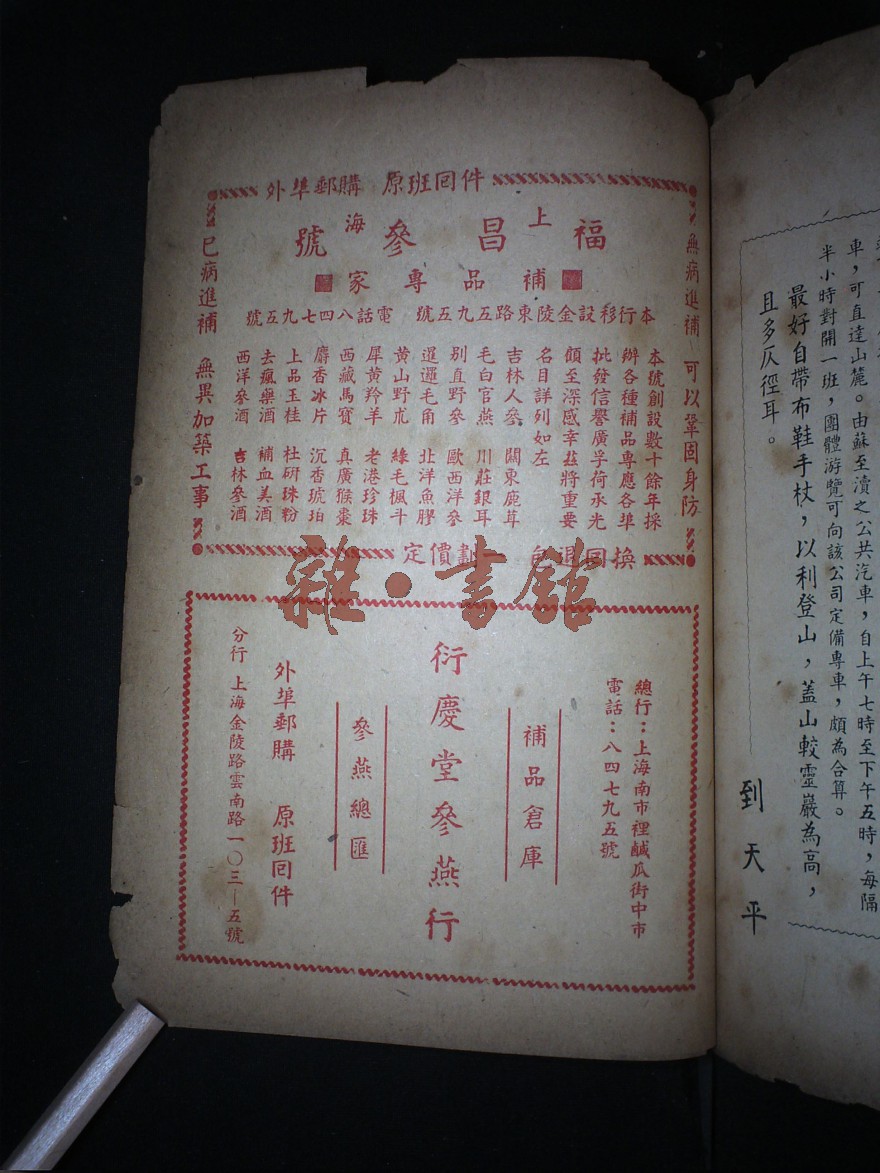 外埠郵購 原班回件
上海
福昌參號
補品專家
本行移設金陵東路五九五號 電話八四七九五號
無病進補 可以鞏固身防
本號創設數十餘年採
辦各種補品專應各埠
批發信譽廣孚荷承光
顧至深感幸茲將重要
名目詳列如左
吉林人參 關東鹿茸
毛白官燕 川莊銀耳
別直野參 歐西洋參
暹邏毛角 北洋魚膠
黃山野朮 綠毛楓斗
犀黃羚羊 老港珍珠
西藏馬寶 真廣猴棗
麝香冰片 沉香琥珀
上品玉桂 杜研珠粉
去瘋藥酒 補血美酒
西洋參酒 吉林參酒
已病進補 無異加築工事
換回退包 劃一價定
雜·書館
總行：上海南市裡鹹瓜街中市
電話：八四七九五號
補品倉庫
衍慶堂參燕行
參燕總匯
外埠郵購 原班回件
分行 上海金陵路雲南路一〇三—五號
車，可直達山麓。由蘇至瀆之公共汽車，自上午七時至下午五時，每隔
半小時對開一班，團體游覽可向該公司定備專車，頗為合算。
最好自帶布鞋手杖，以利登山，蓋山較靈巖為高，
且多仄徑耳。
到天平